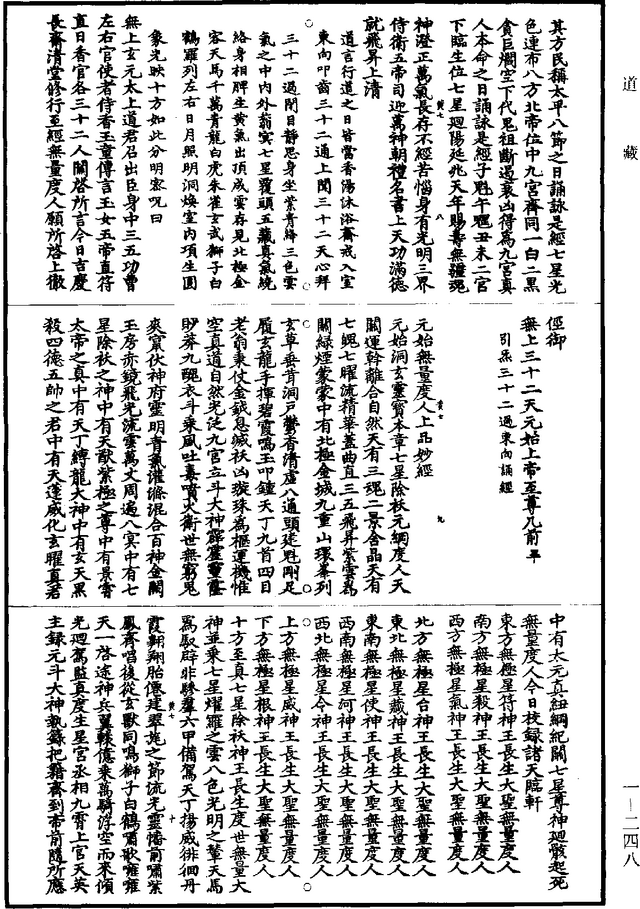 道藏
其方民稱太平八節之日誦詠是經七星光
色連布八方北帝位中九宮齊同一白二黑
貪巨爛空下代鬼祖斷遏衰凶得為九宮真
人本命之日誦詠是經子魁午魒丑未二宮
下臨生位七星迴陽延兆天年賜壽無疆魂
神澄正萬氣長存不經苦惱身有光明三界
侍衛五帝司迎萬神朝禮名書上天功滿德
就飛昇上清
道言行道之日皆當香湯沐浴齋戒入室
東向叩齒三十二通上聞三十二天心拜
三十二過閉目靜思身坐紫青絳三色雲
氣之中內外蓊冥七星覆頭五藏真氣繞
絡身相脾生黃氣出頂成雲存見北極金
容天馬千萬青龍白虎朱雀玄武獅子白
鶴羅列左右日月照明洞煥室內項生圓
象光映十方如此分明密呪曰
無上玄元太上道君召出臣身中三五功曹
左右官使者侍香玉童傳言玉女五帝直符
直日香官各三十二人關啓所言今日吉慶
長齋清堂修行至經無量度人願所啓上徹
徑御
無上三十二天元始上帝至尊几前畢
引炁三十二過東向誦經
元始無量度人上品妙經
元始洞玄靈寶本章七星除袄元綱度人天
關運幹離合自然天有三魂二景舍晶天有
七魄七曜流精華蓋曲直三五飛昇紫雲為
闕綠煙蒙蒙中有北極金城九重山環峯列
玄草垂茸洞戶鬱香清虛八通頭延魁剛足
履玄龍手揮碧霞鳴玉叩鐘天丁九首四目
老翁束仗金鉞息緘袄凶璇珠為樞運機惟
空真道自然光泛九宮立斗大神霹靂靈𩆜
眇莽九醜衣斗乘風吐毒噴火衛世無窮鬼
爽窠伏神府靈明青氣灌滌混合百神金闕
玉房赤鏡飛光流雲萬丈周遍八冥中有七
星除袄之神中有天猷紫極之尊中有景霄
太帝之真中有天丁縛龍大神中有玄天黑
殺四德五帥之君中有天蓬威化玄曜真君
中有太元真紐綱紀關七星尊神迴骸起死
無量度人今日校録諸天臨軒
東方無極星符神王長生大聖無量度人
南方無極星殺神王長生大聖無量度人
西方無極星氣神王長生大聖無量度人
北方無極星台神王長生大聖無量度人
東北無極星藏神王長生大聖無量度人
東南無極星使神王長生大聖無量度人
西南無極星河神王長生大聖無量度人
西北無極星令神王長生大聖無量度人
上方無極星威神王長生大聖無量度人
下方無極星根神王長生大聖無量度人
十方至真七星除袄神王長生度世無量大
神並乘七星燿羅之雲八色光明之輦天馬
為馭辟非驂羣六甲備駕天丁揚威徘徊丹
霞翱翔胎僊建翠旄之節流光靈幡前嘯紫
鳳齊唱後從玄獸同鳴獅子白鶴嘯歌嗈嗈
天一啓途神兵翼轅億乘萬騎浮空而來傾
光迴駕監真度生星宮丞相九霄上宮天英
主録元斗大神執籙把籍齊到帝前隨所應
一—二四八